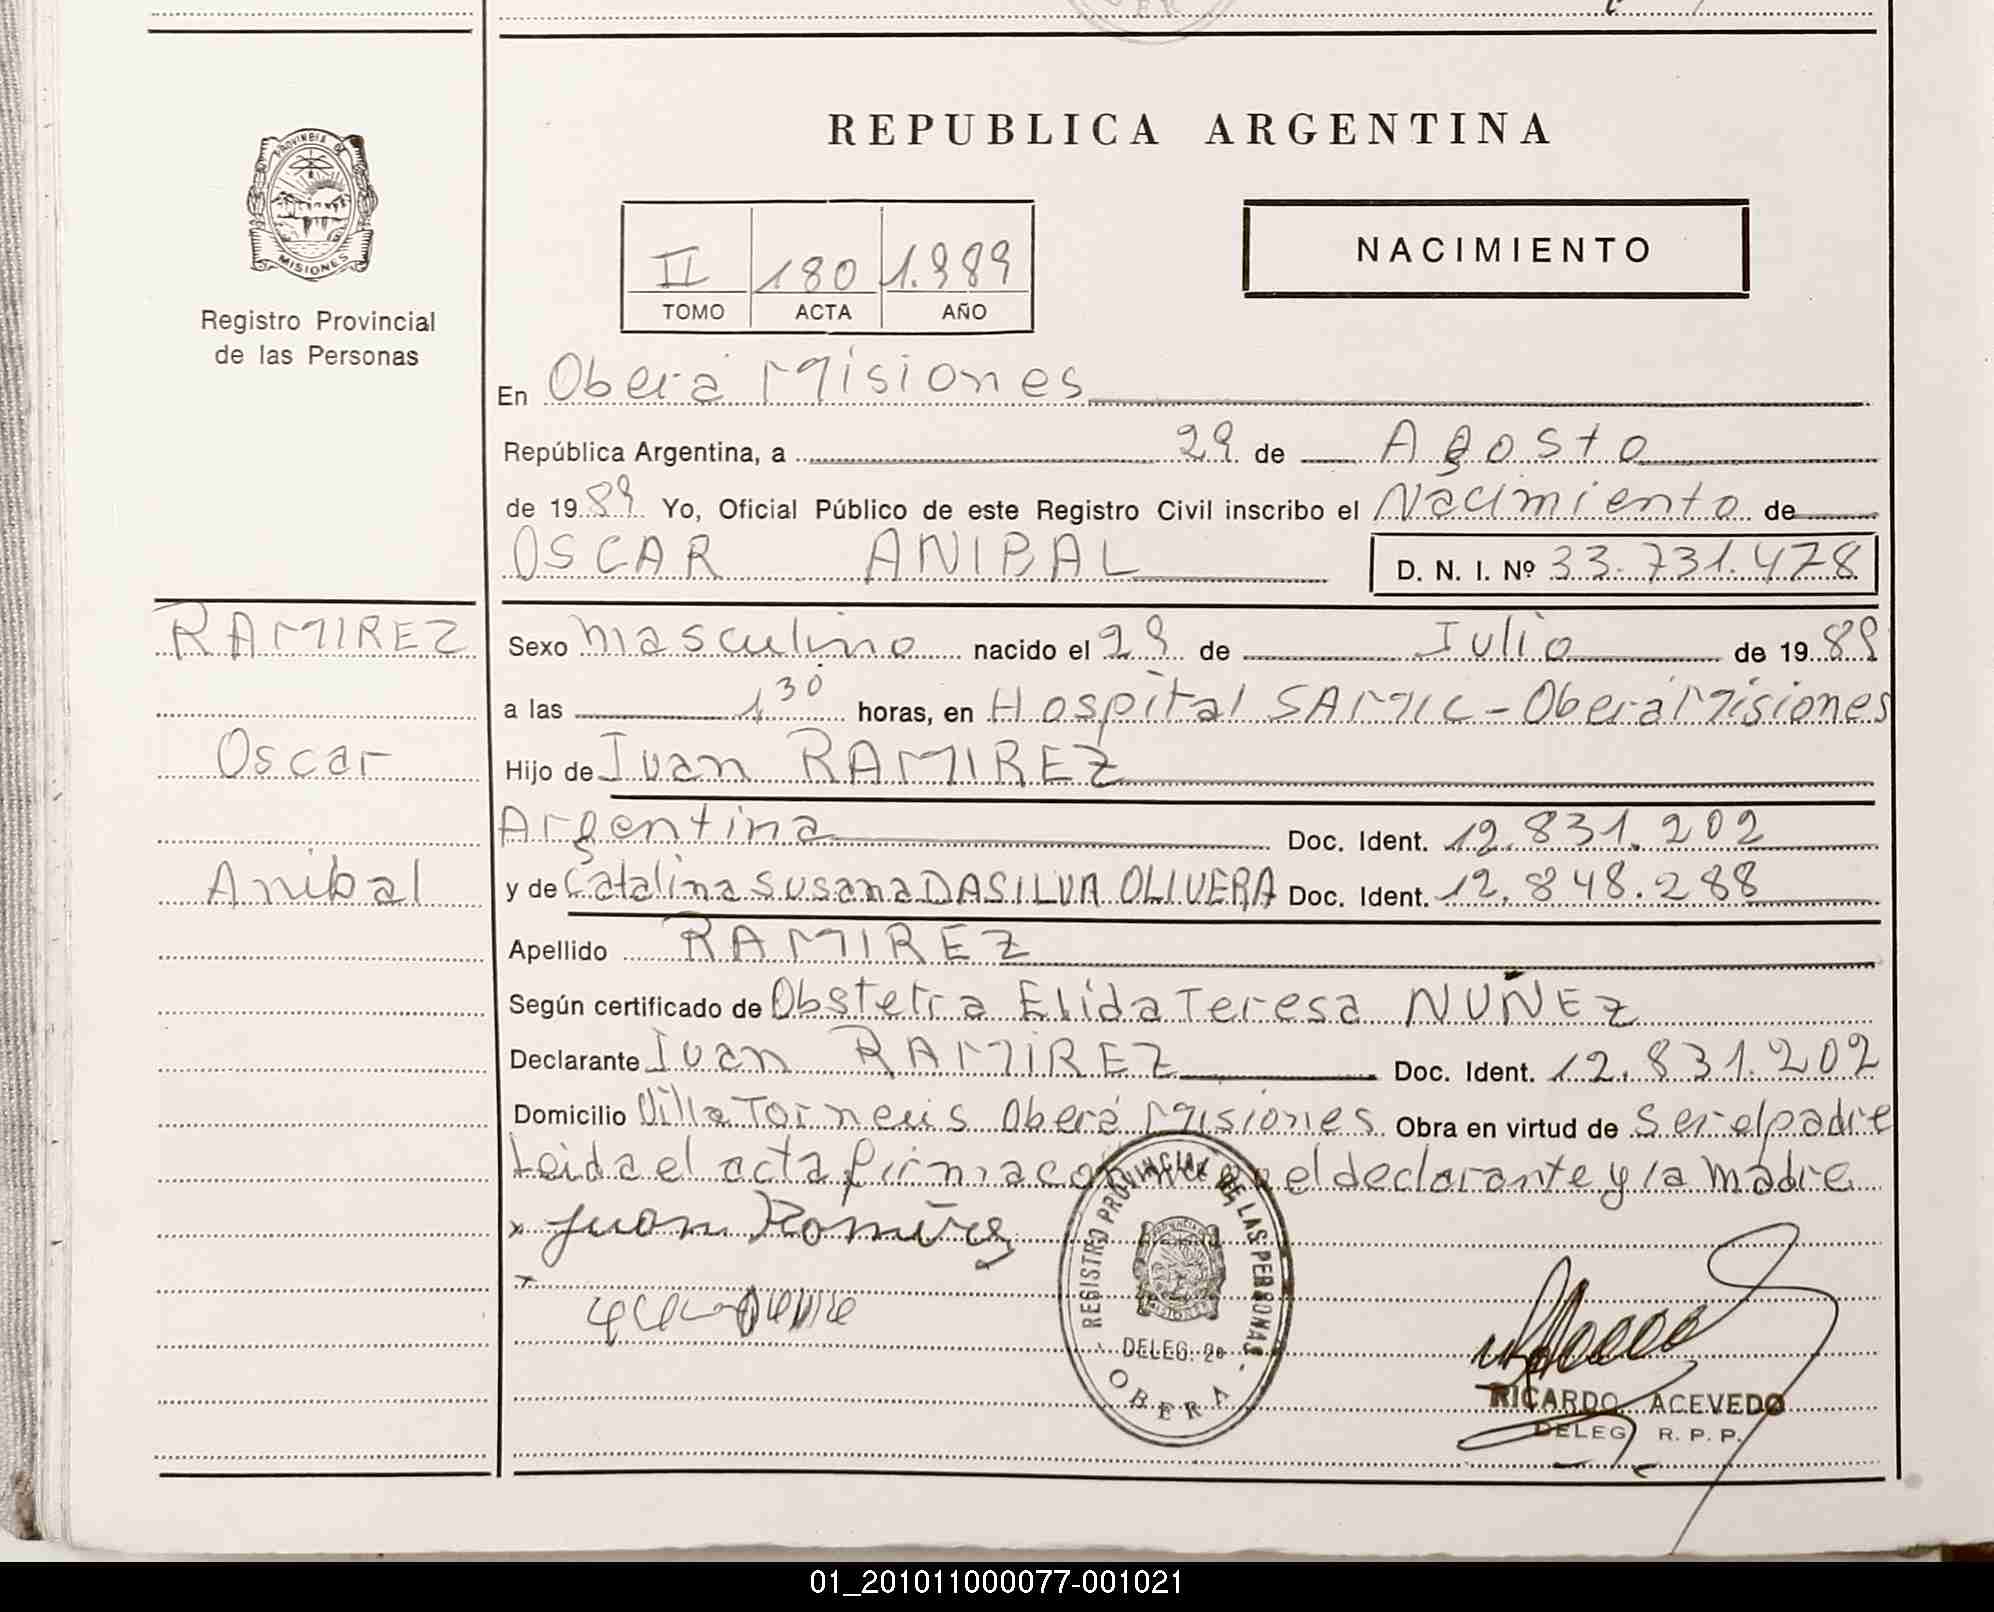 PROVINCIA DE
MISIONES
Registro Provincial
de las Personas
RAMIREZ
Oscar
Anibal
REPUBLICA ARGENTINA
II 180 1.989
TOMO ACTA AÑO
NACIMIENTO
En Oberá Misiones
República Argentina, a 29 de Agosto
de 1989 Yo, Oficial Público de este Registro Civil inscribo el Nacimiento de
OSCAR ANIBAL D. N. I. Nº 33.731.478
Sexo masculino nacido el 29 de Julio de 1989
a las 1 30 horas, en Hospital SAMIC - Oberá Misiones
Hijo de Juan RAMIREZ
Argentina Doc. Ident. 12.831.202
y de Catalina Susana DASILVA OLIVERA Doc. Ident. 12.848.288
Apellido RAMIREZ
Según certificado de Obstetra Elida Teresa NUÑEZ
Declarante Juan RAMIREZ Doc. Ident. 12.831.202
Domicilio Villa Torneus Oberá Misiones Obra en virtud de Ser el padre
Leida el acta firma el declarante y la madre
x Juan Ramires
x
REGISTRO PROVINCIAL DE LAS PERSONAS
DELEG. 2ª
OBERA
RICARDO ACEVEDO
DELEG R. P. P.
01_201011000077-001021